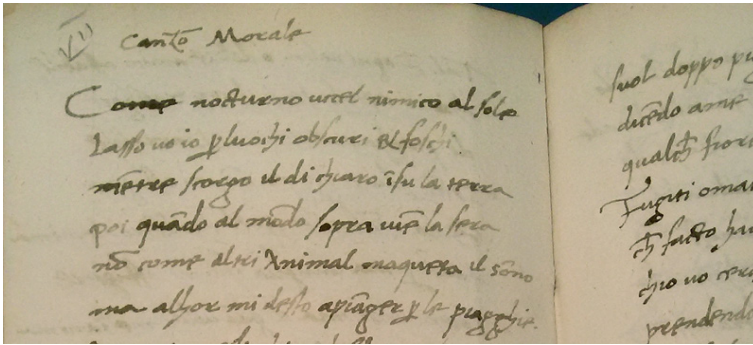 VII
Canto Morale
Come nocturno uccel nimico al sole
Lasso uo io ꝑ luochi obscuri & foschi
mẽtre scorgo il di chiaro ĩsu la terra
poi quãdo al mõdo sopra uiẽ la sera
nõ come altri Animal maqueta il sõno
ma alhor mi desto apiãger ꝑ le piagghie.
suol doppo
dicẽdo ame
qualch̃ fior
Fugiti omai
ch̃ facto
chio uo cer
prendend